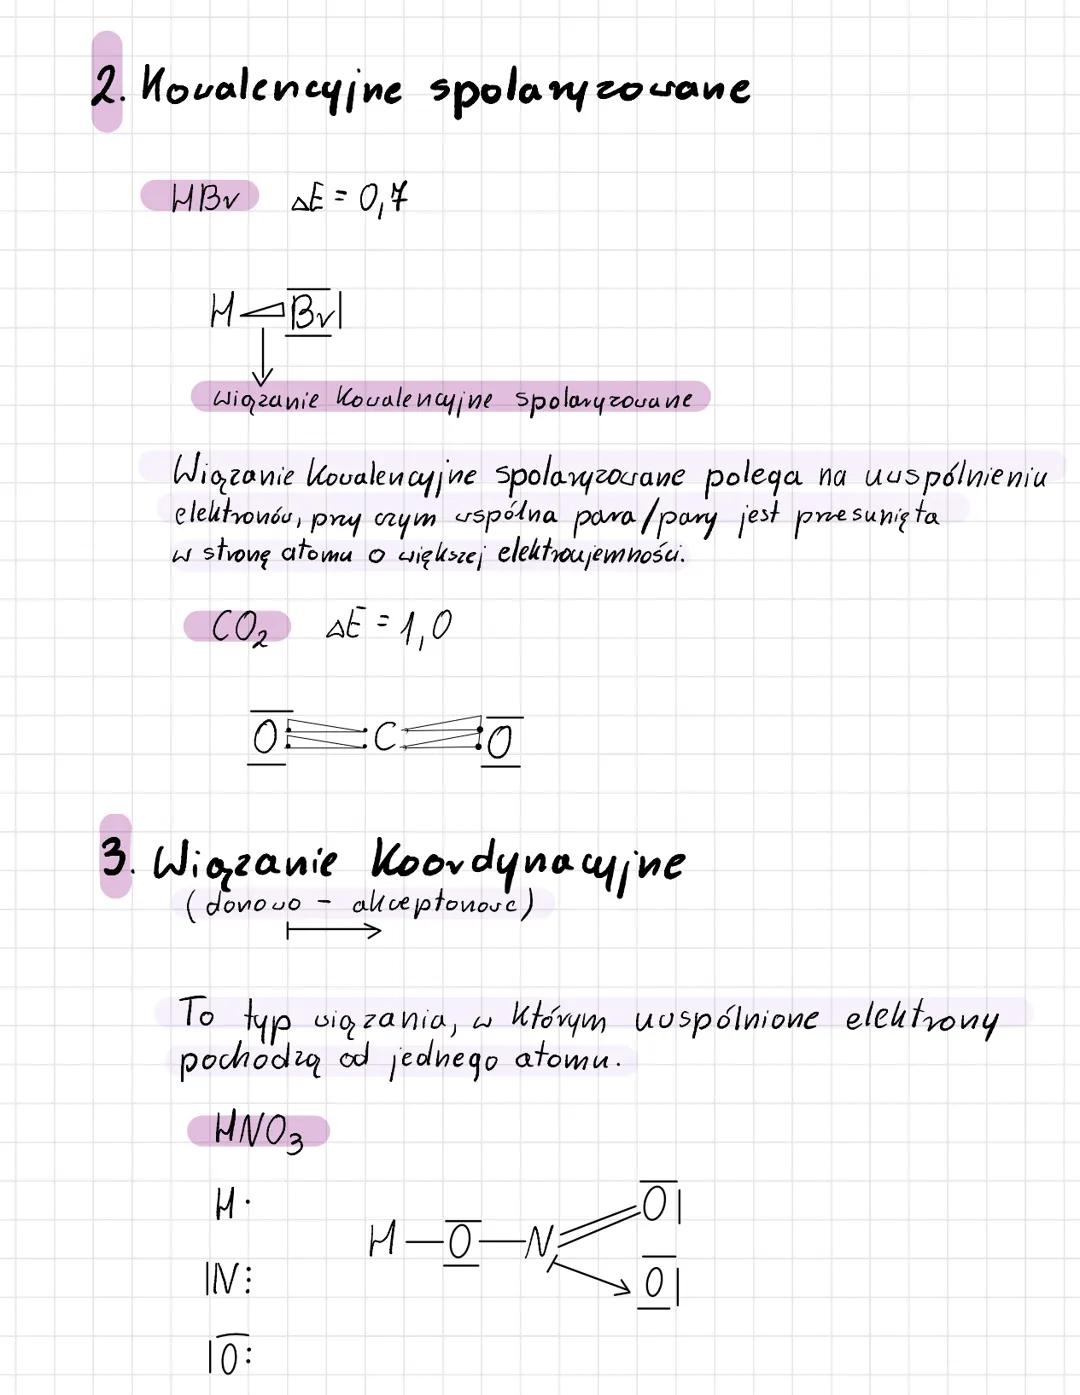 2. Kowalencyjne spolaryzowane
HBr ΔE = 0,7
H Br|
wiązanie kowalencyjne spolaryzowane
Wiązanie kowalencyjne spolaryzowane polega na uwspólnieniu
elektronów, przy czym wspólna para/pary jest przesunięta
w stronę atomu o większej elektroujemności.
CO₂ ΔE = 1,0
O C O
3. Wiązanie koordynacyjne
(donowo - akceptonowe)
To typ wiązania, w którym uwspólnione elektrony
pochodzą od jednego atomu.
HNO₃
H·
H—O—N=O|
O|
|N⫶
|O: